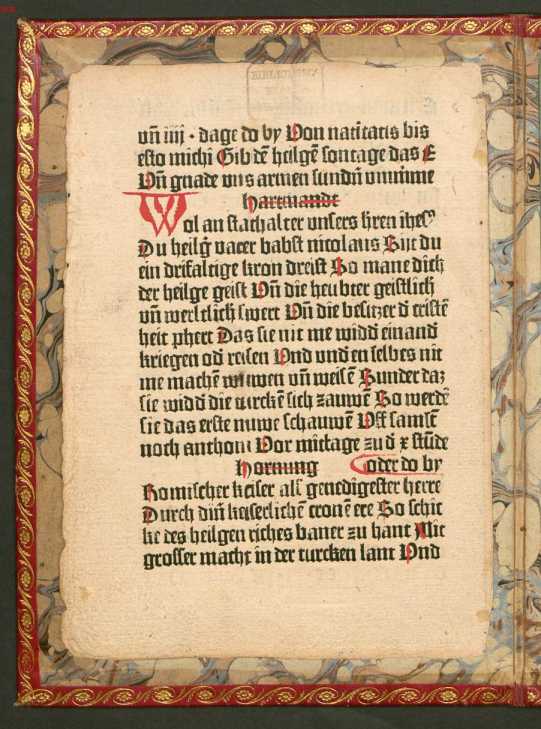 vn̄ iiij · dage do by Von natiītatis bis
esto michi Gib dē heilgē fontage das E
Vn̄ gnade vns armen sundn̄ vmmme
hartmandt
Wol an stathalter vnsers h̄ren ihesꝰ
Du heilḡ vater babst nicolaus Sijt du
ein drifaltige kron dreist So mane dich
der heilge geist Vn̄ die heubter geistlich
vn̄ werltlich swert Vn̄ die besitzer d̄ cristē
heit phert Das sie nit me widd̄ einand̄
kriegen od̄ reisen Vnd vnd̄en selbes nit
me machē witwen vn̄ weisē Sunder daz
sie widd̄ die turckē sich zauwē So werdē
sie das erste nuwe schauwē Vff samſē
noch anthoni Vor mittage zu d̄ x stūde
hornung oder do by
Romischer keiser alſ̄ genedigester herre
Durch din̄ keiserlichē cronē ere So schic
ke des heilgen riches baner zu hant Mit
grosser macht in der turcken lant Vnd